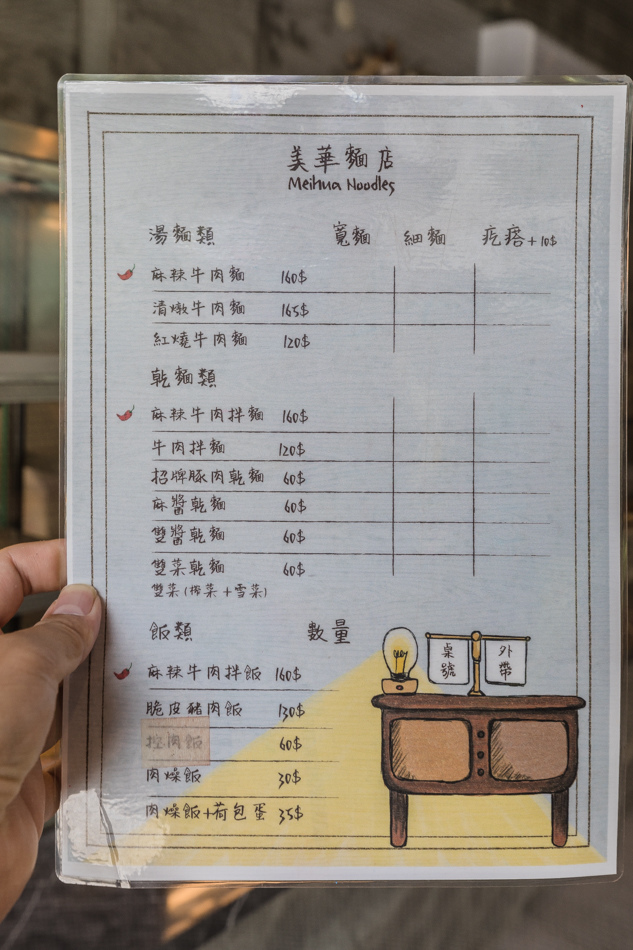 美華麵店
Meihua Noodles
湯麵類 寬麵 細麵 疙瘩+10$
麻辣牛肉麵 160$
清燉牛肉麵 165$
紅燒牛肉麵 120$
乾麵類
麻辣牛肉拌麵 160$
牛肉拌麵 120$
招牌豚肉乾麵 60$
麻醬乾麵 60$
雙醬乾麵 60$
雙菜乾麵 60$
雙菜(榨菜+雪菜)
飯類 數量
麻辣牛肉拌飯 160$
脆皮豬肉飯 130$
控肉飯 60$
肉燥飯 30$
肉燥飯+荷包蛋 35$
桌號
外帶